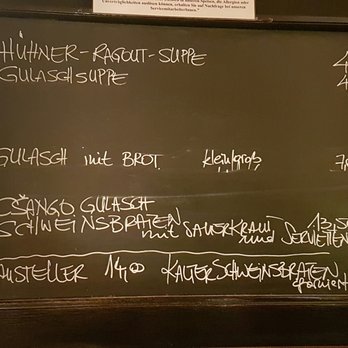 Unverträglichkeiten auslösen können, erhalten Sie auf Nachfrage bei unseren
Servicemitarbeiter/innen."
HÜHNER-RAGOUT-SUPPE 4
GULASCHSUPPE 4
GULASCH mit BROT klein/groß 7,
CSANGO GULASCH
SCHWEINSBRATEN
mit SAUERKRAUT 13,5
und SERVIETTEN
AUSTELLER 14,00 KALTER SCHWEINSBRATEN